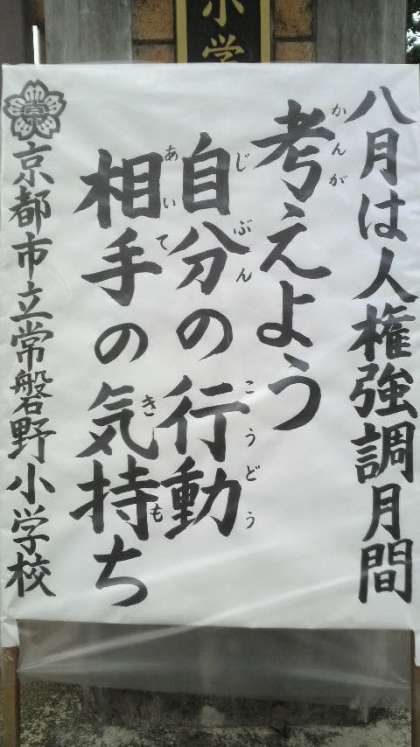 小学
八月は人権強調月間
考えよう
かんが
自分の行動
じぶん
こうどう
相手の気持ち
あいて
きも
京都市立常磐野小学校